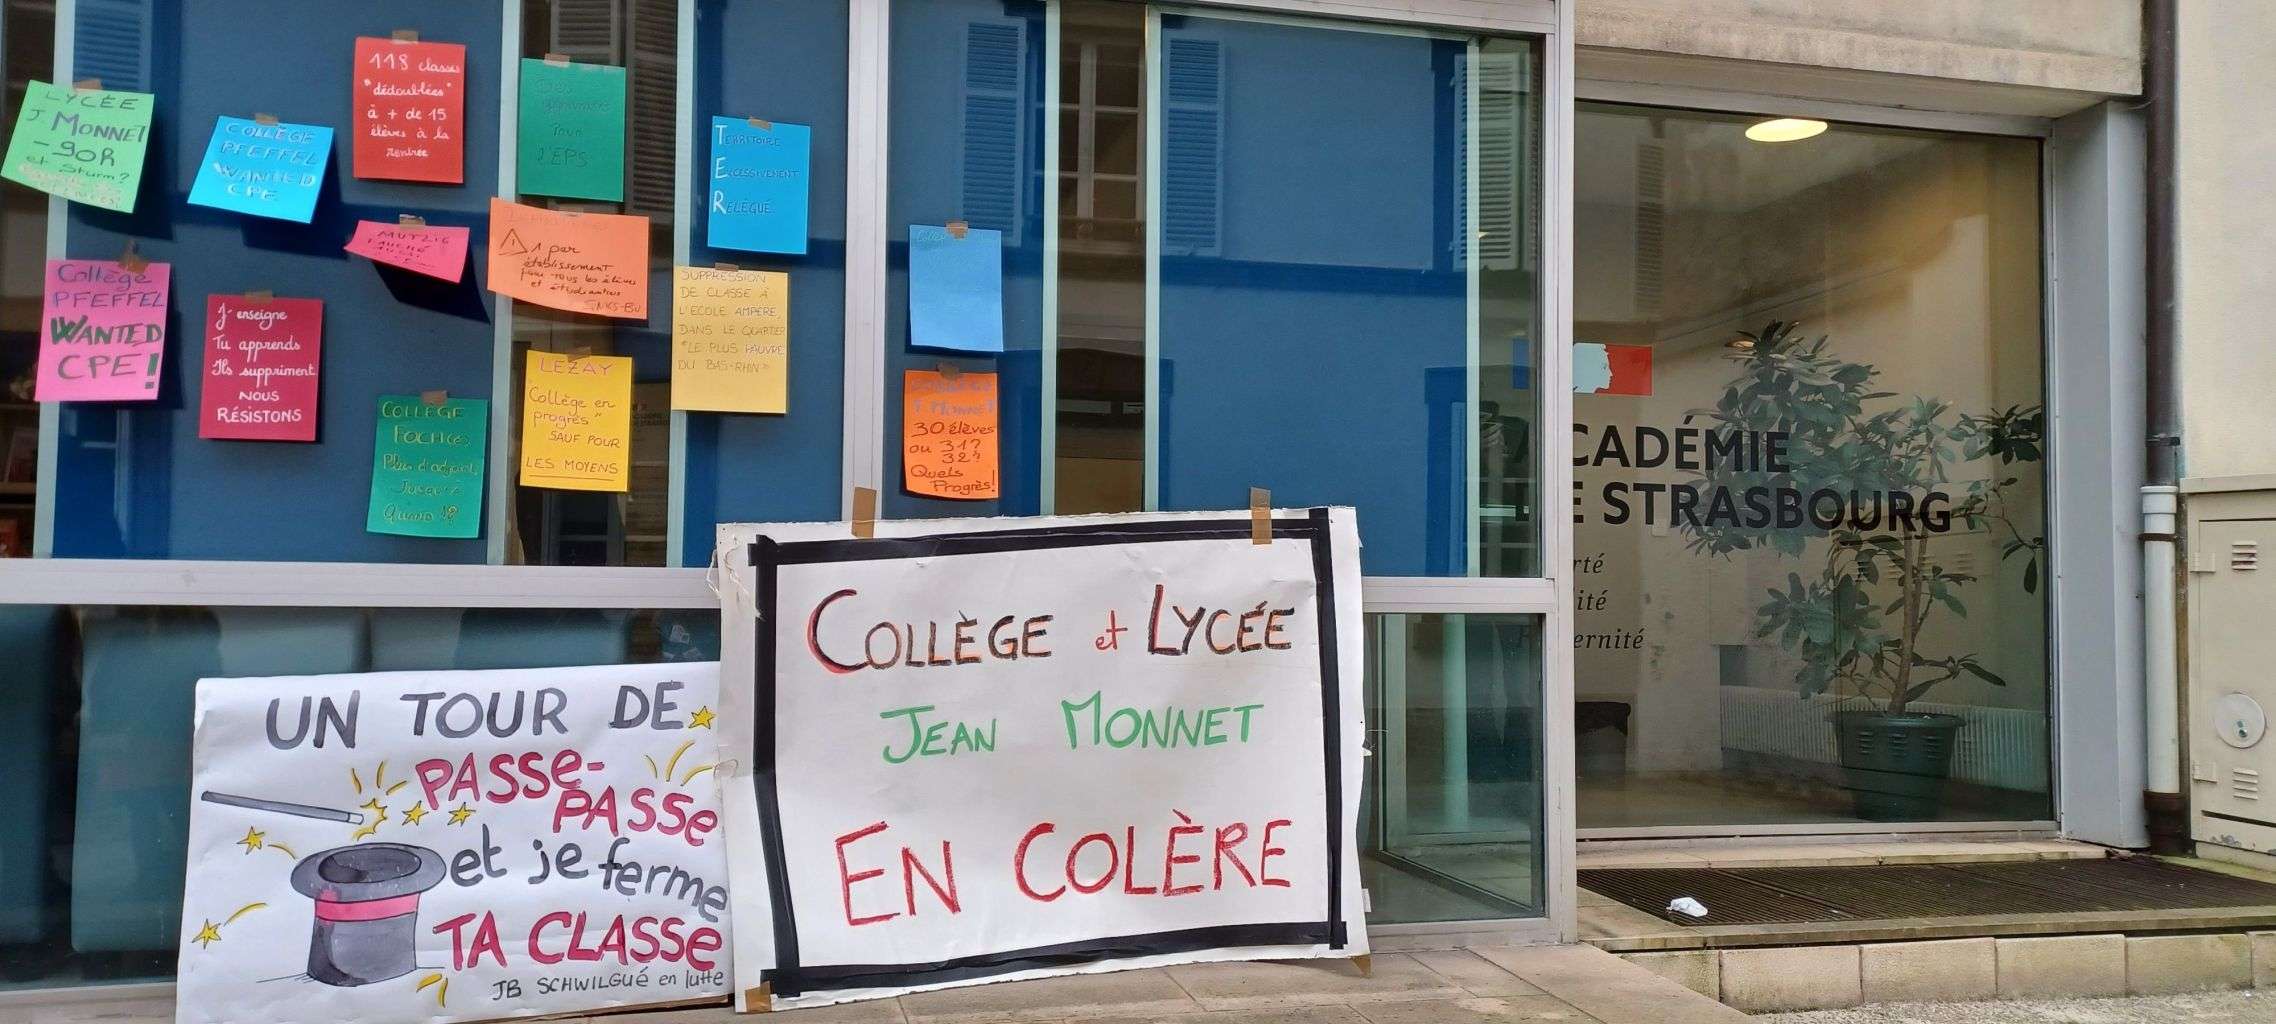 LYCÉE
J. MONNET
-90H
et Sturm?
COLLÈGE
PFEFFEL
WANTED
CPE
118 classes
"dédoublées"
à + de 15
élèves à la
rentrée
Des
gymnases
Pour
L'EPS
TERRITOIRE
EXCESSIVEMENT
RELÉGUÉ
Collège
PFEFFEL
WANTED
CPE!
J'enseigne
Tu apprends
Ils suppriment
NOUS
RÉSISTONS
MUTZIG
COLLÈGE
FOCH
Plus d'adjoint
Jusqu'à
Quand !?
1 par
établissement
pour tous les élèves
et étudiantes
LEZAY
"Collège en
progrès"
SAUF POUR
LES MOYENS
SUPPRESSION
DE CLASSE À
L'ECOLE AMPÈRE,
DANS LE QUARTIER
"LE PLUS PAUVRE
DU BAS-RHIN"
J. MONNET
30 élèves
ou 31?
32?
Quels
Progrès!
UN TOUR DE
PASSE-
PASSE
et je ferme
TA CLASSE
JB SCHWILGUÉ en lutte
COLLÈGE et LYCÉE
JEAN MONNET
EN COLÈRE
ACADÉMIE
DE STRASBOURG
rté
ité
ernité